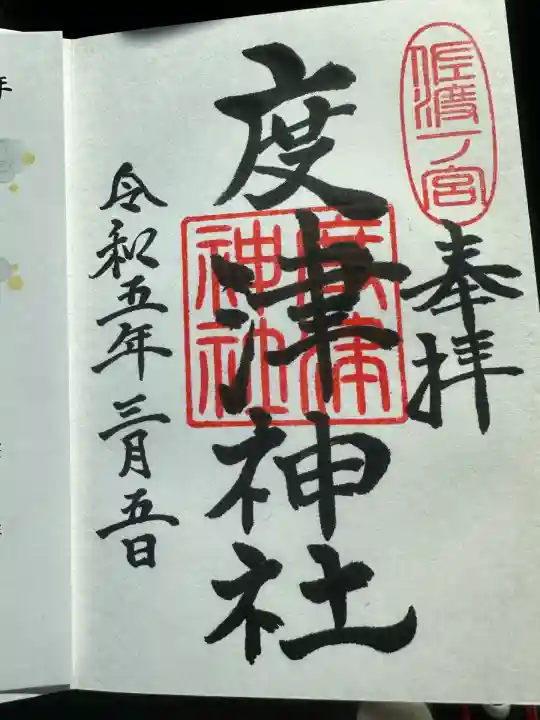 佐渡一ノ宮
奉拝
度津神社
度津神社
令和五年三月五日
年